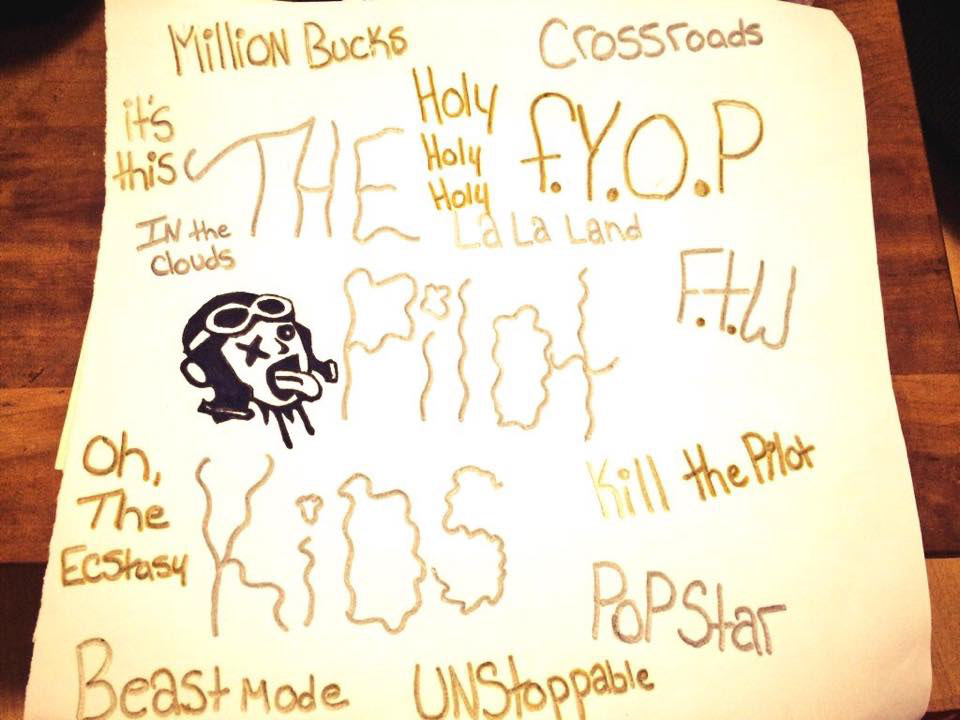 Million Bucks
Crossroads
it's
this
THE
Holy
Holy
Holy
f.Y.O.P
IN the
Clouds
La La Land
Pilot
F.t.W
Oh,
The
Ecstasy
Kids
Kill the Pilot
PoPStar
Beast Mode
UNStoppable